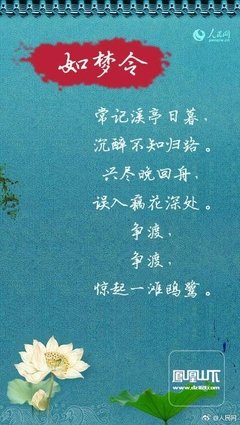 人民网
如梦令
常记溪亭日暮，
沉醉不知归路。
兴尽晚回舟，
误入藕花深处。
争渡，
争渡，
惊起一滩鸥鹭。
鳳凰山下
@人民网